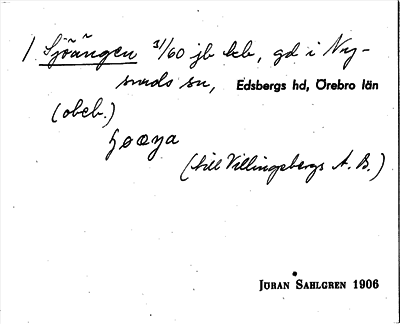 / Sjöängen 31/60 jb kb, gd i Ny-
sunds sn, Edsbergs hd, Örebro län
(obeb.)
(till Villingsbergs A. B.)
JÖRAN SAHLGREN 1906